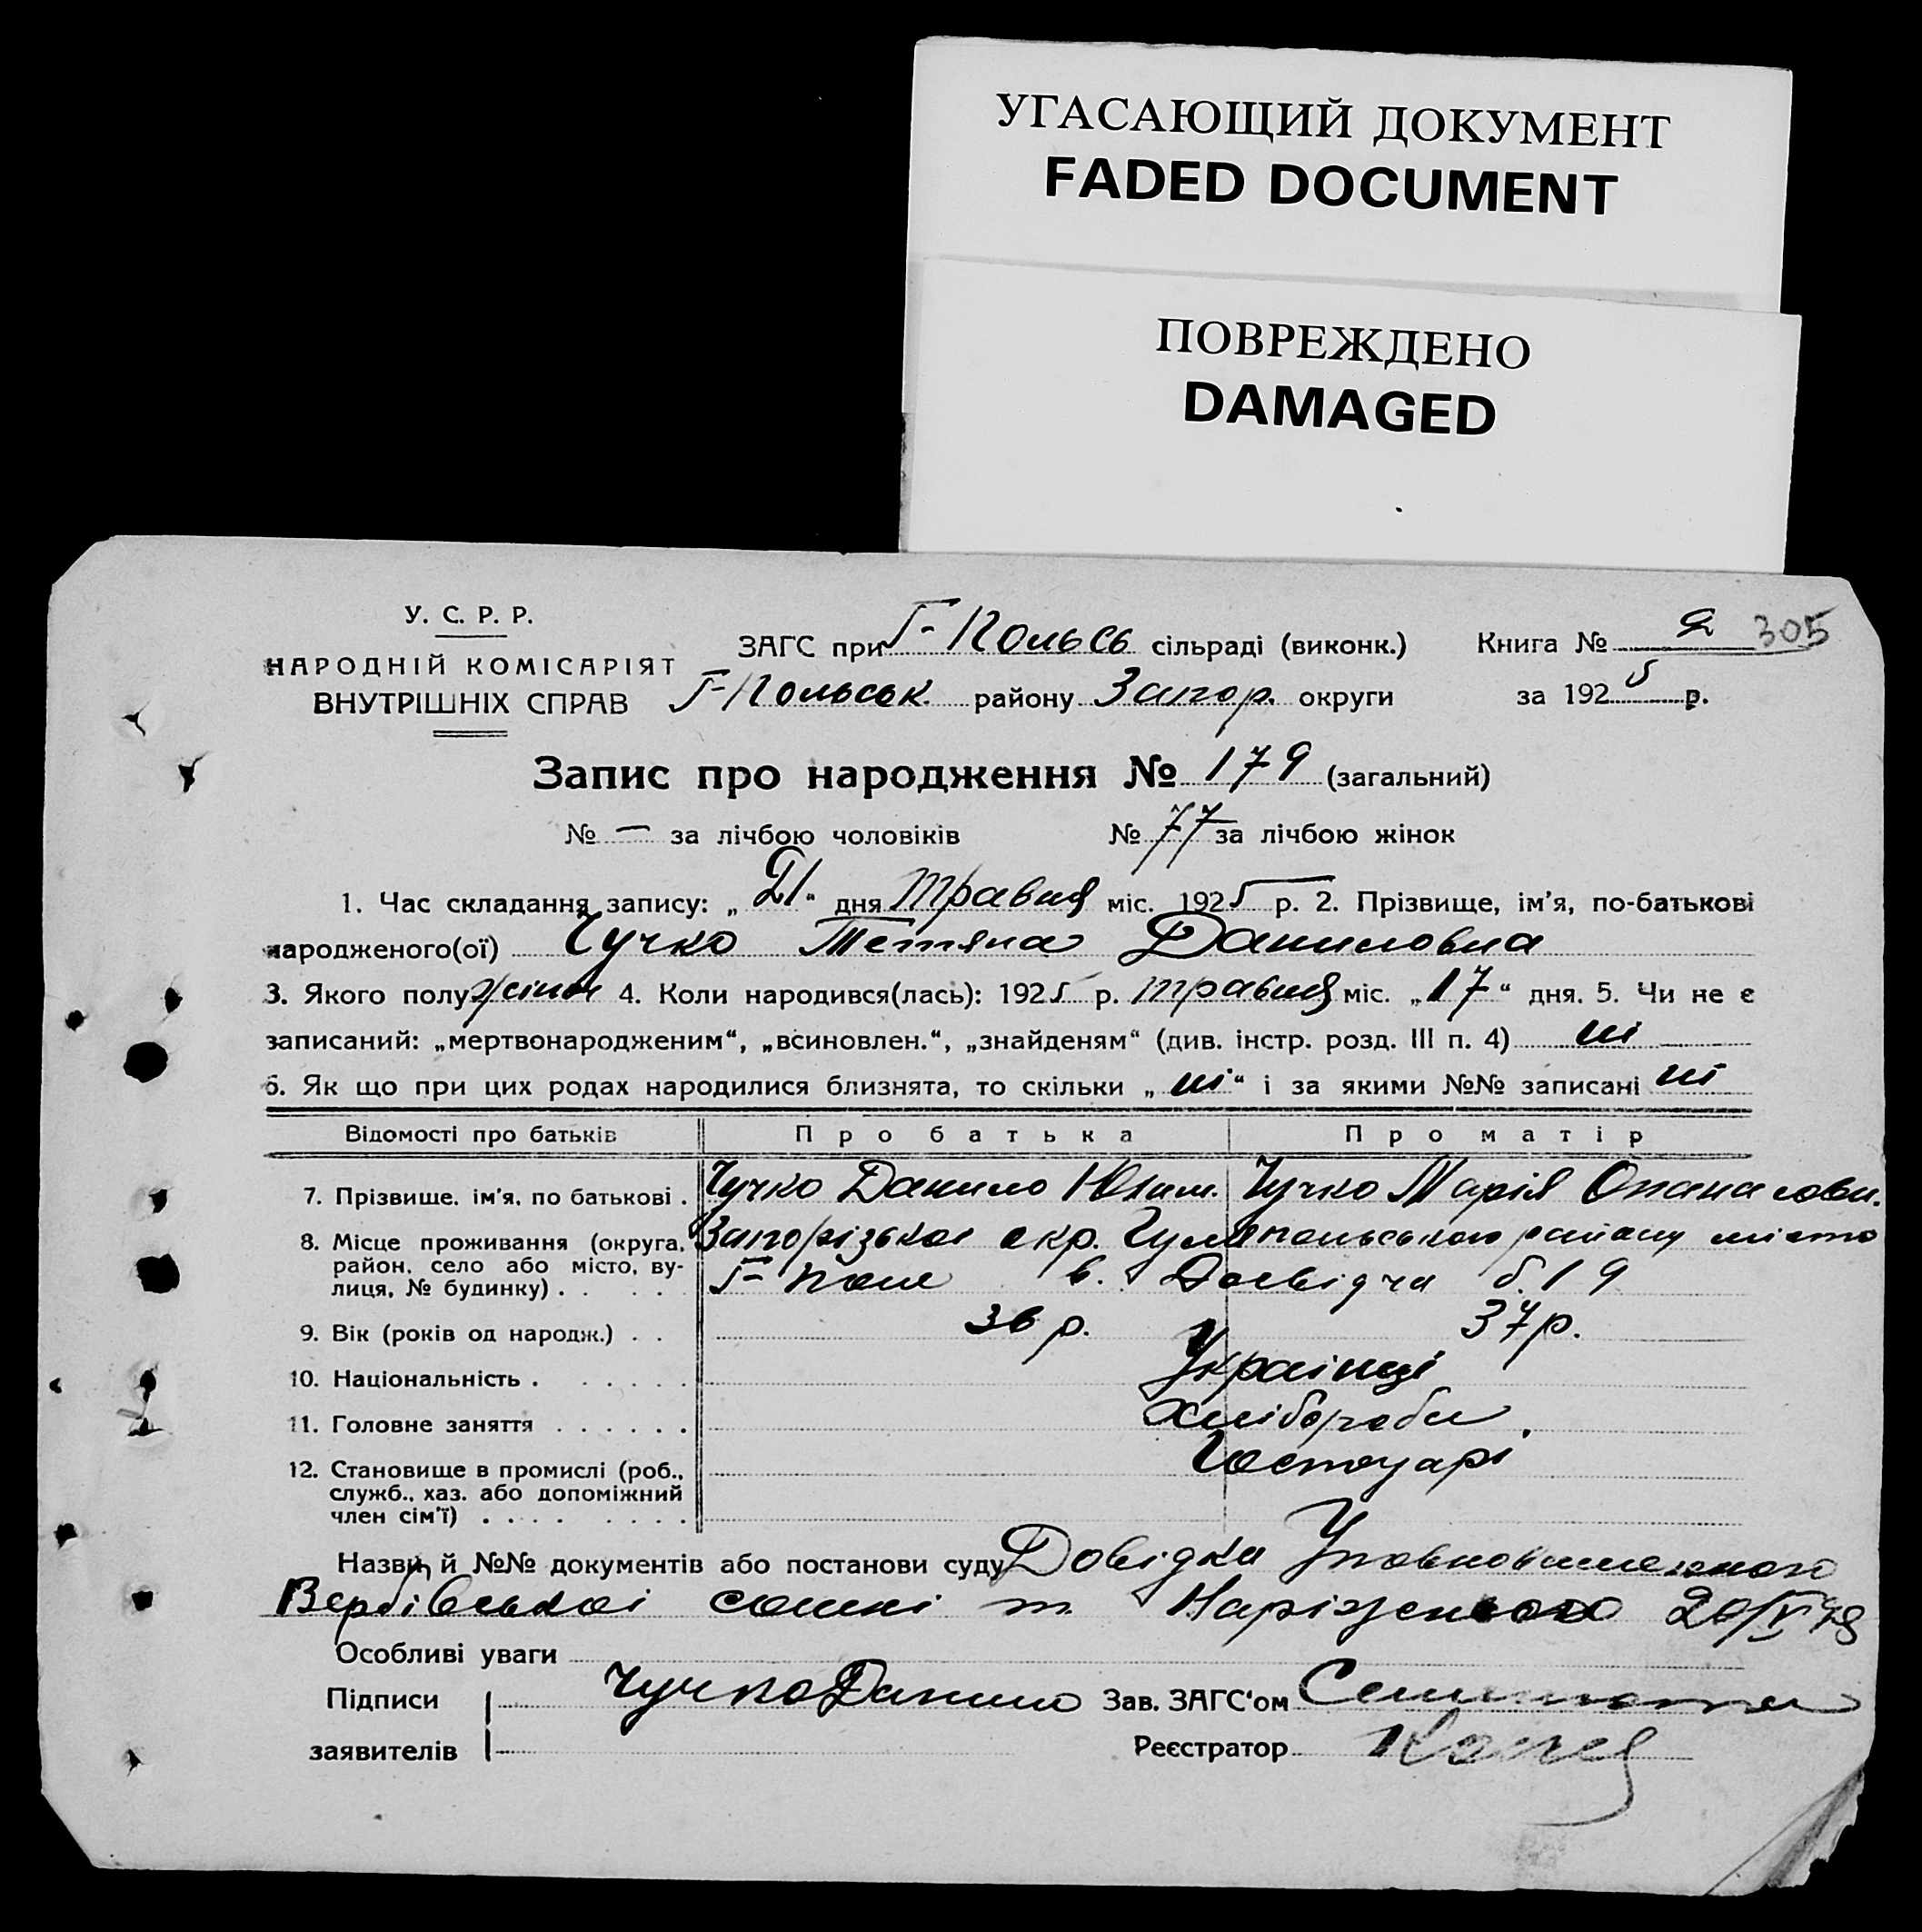 УГАСАЮЩИЙ ДОКУМЕНТ
FADED DOCUMENT
ПОВРЕЖДЕНО
DAMAGED
У. С. Р. Р.
НАРОДНІЙ КОМІСАРІЯТ
ВНУТРІШНІХ СПРАВ
ЗАГС при Г-Польсь сільраді (виконк.) Книга № 2 305
Г-Польськ. району Запор. округи за 1925 р.
Запис про народження № 179 (загальний)
№ — за лічбою чоловіків № 77 за лічбою жінок
1. Час складання запису: „21“ дня травня міс. 1925 р. 2. Прізвище, ім'я, по-батькові
народженого(ої) Чучко Тетяна Даниловна
3. Якого полу жіноч 4. Коли народився(лась): 1925 р. травня міс. „17“ дня. 5. Чи не є
записаний: „мертвонародженим“, „всиновлен.“, „знайденям“ (див. інстр. розд. III п. 4) ні
6. Як що при цих родах народилися близнята, то скільки „ні“ і за якими №№ записані ні
Відомості про батьків Про батька Про матір
7. Прізвище, ім'я, по батькові . Чучко Данило Юхим. Чучко Марія Опанасовн.
8. Місце проживання (округа, Запорізькоі окр. Гуляпольського району місто
район, село або місто, ву-
лиця, № будинку) . . . . Г-Поле в. б. 19
9. Вік (років од народж.) . . 36 р. 37 р.
10. Національність . . . . . . Українці
11. Головне заняття . . . . . . хлібороби
12. Становище в промислі (роб., Господарі
служб., хаз. або допоміжний
член сім'ї) . . . . . . . .
Назви й №№ документів або постанови суду Довідка Уповноваженого
Вербівськоі сотні т. Наріженого 20/V
Особливі уваги
Підписи Чучко Данило Зав. ЗАГС'ом
заявителів Реєстратор